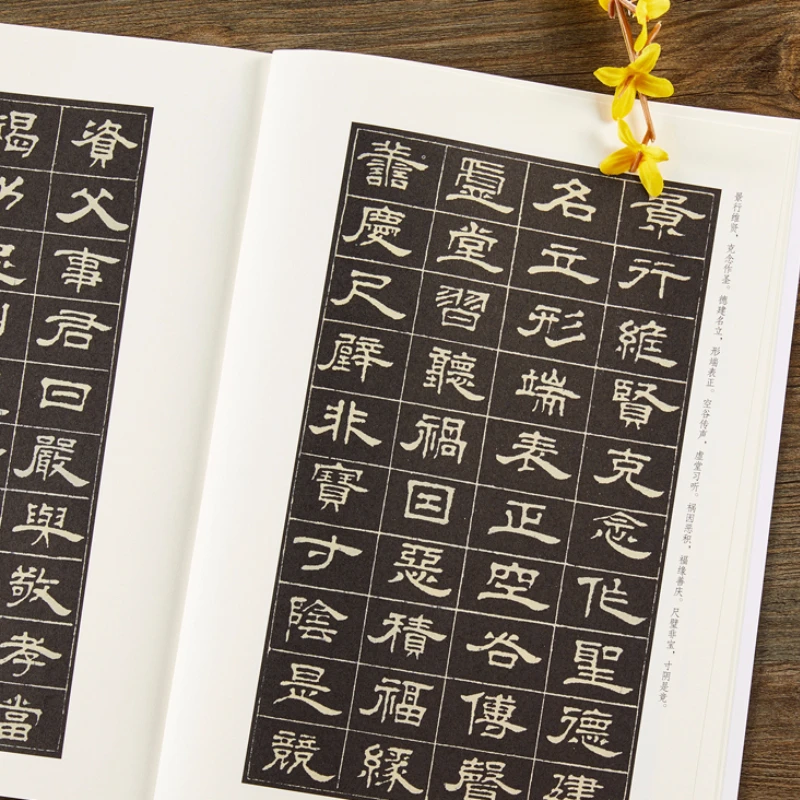 景行维贤，克念作圣。德建名立，形端表正。空谷传声，虚堂习听。祸因恶积，福缘善庆。尺璧非宝，寸阴是竞。
景行維賢克念作聖德建
名立形端表正空谷傳聲
虛堂習聽禍因惡積福緣
善慶尺璧非寶寸陰是競
資父事君曰嚴與敬孝當